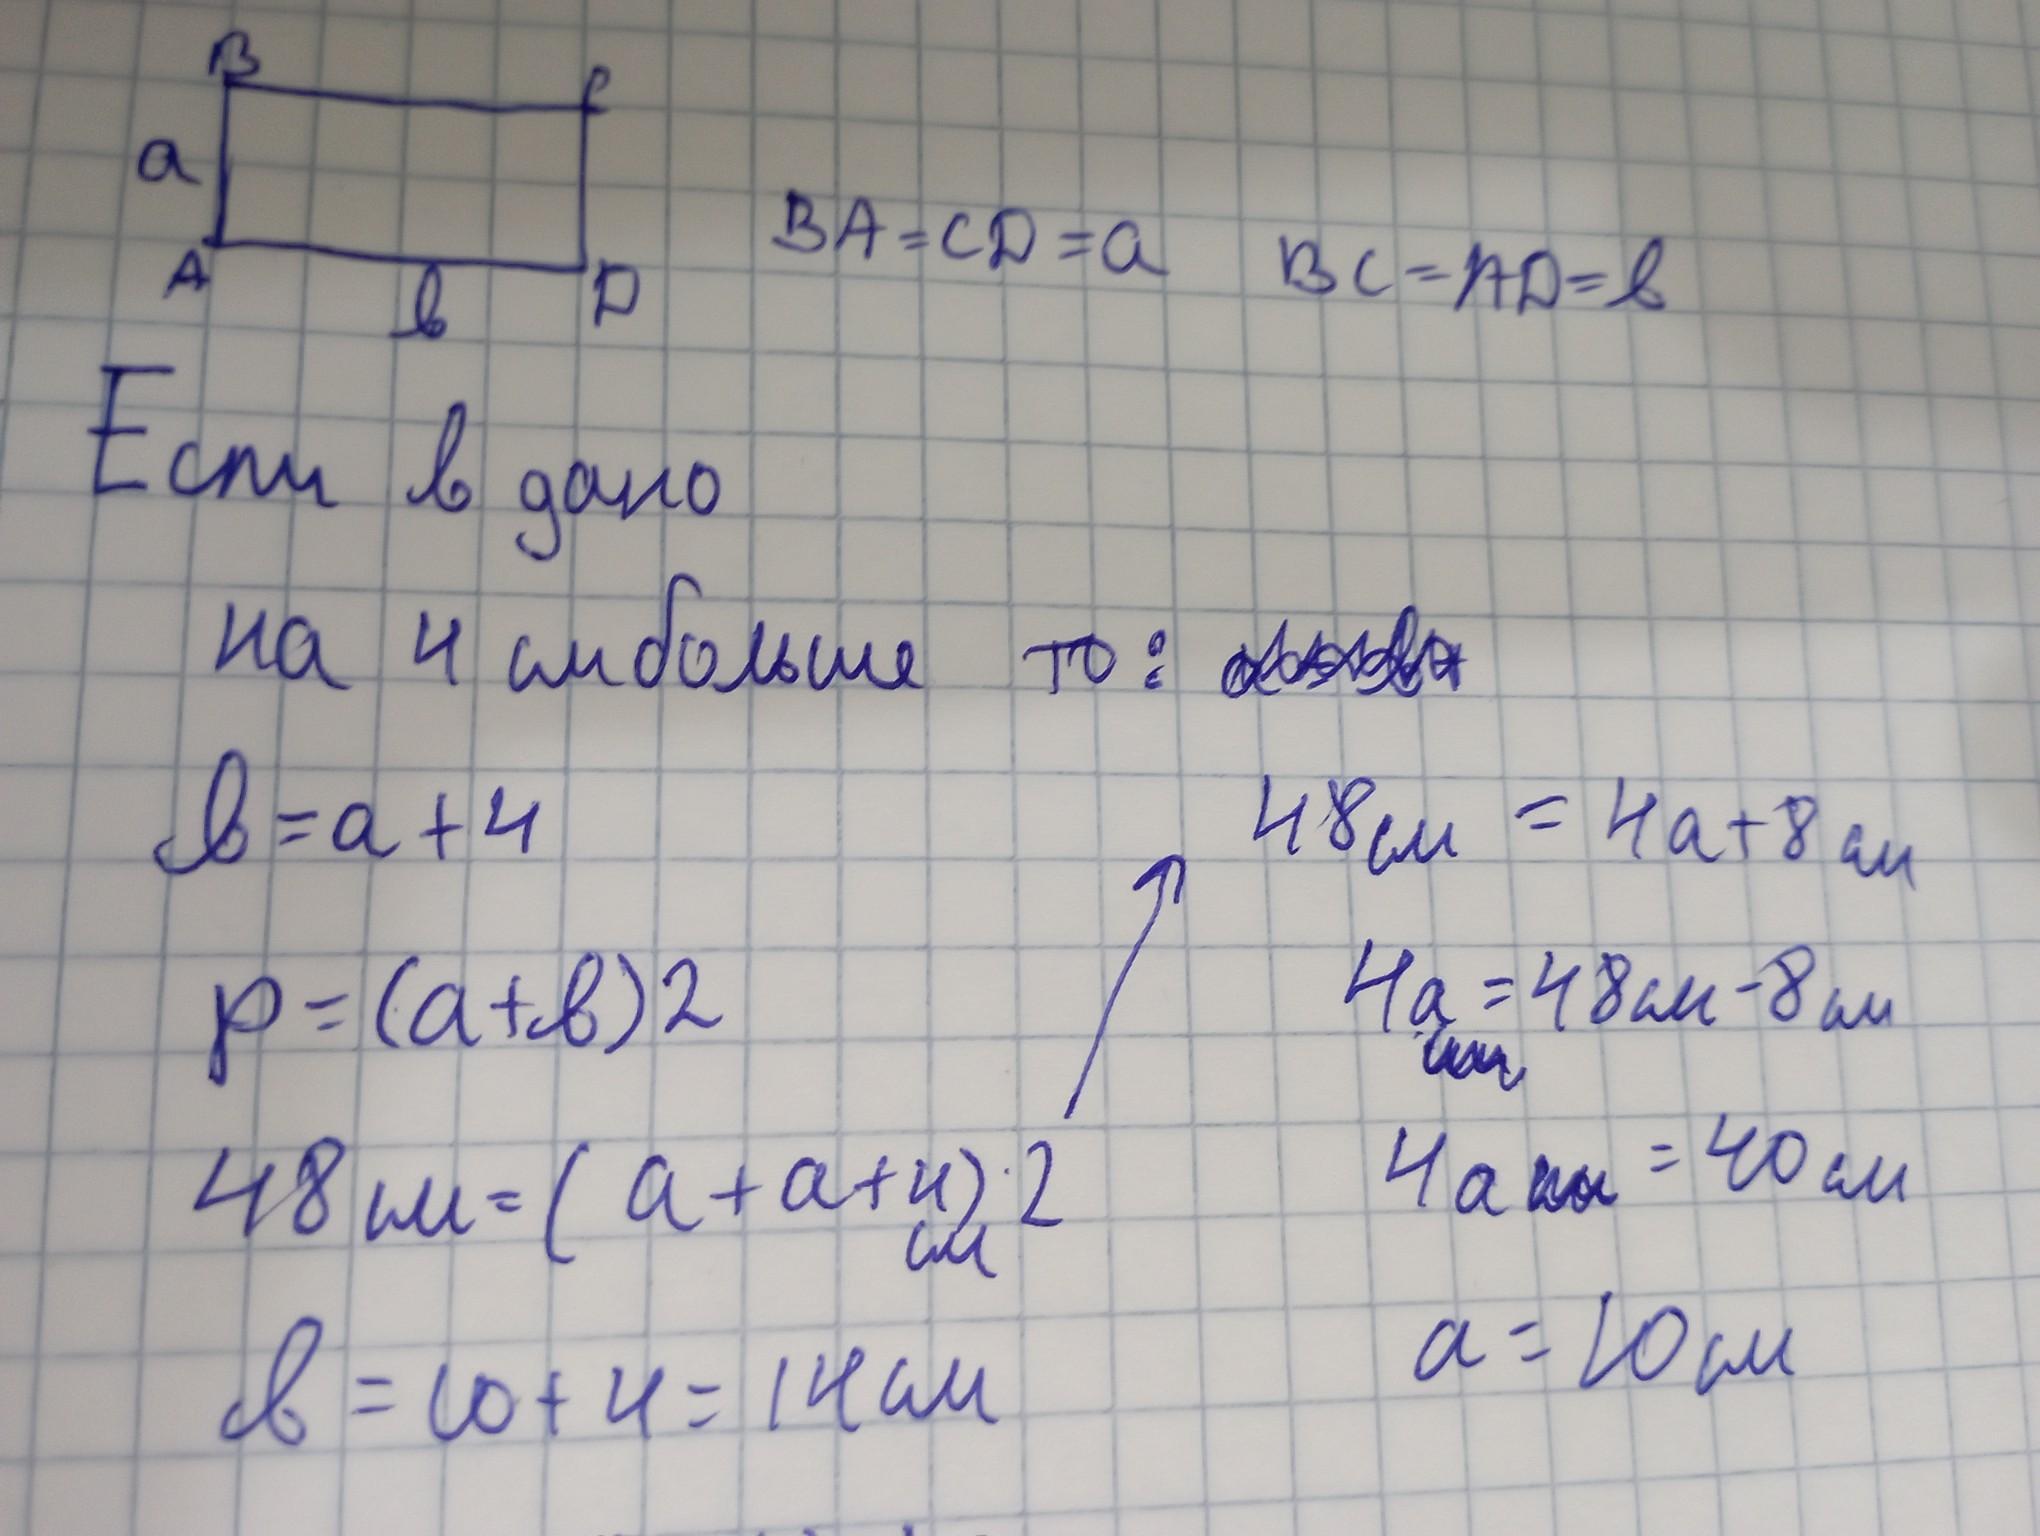 B C
a
A в D
BA=CD=a BC=AD=в
Если в дано
на 4 см больше то:
в=a+4
p=(a+в)2
48см=(a+a+4см)·2
48см = 4a+8см
4a=48см-8см
4a=40см
a=10см
в=10+4=14см